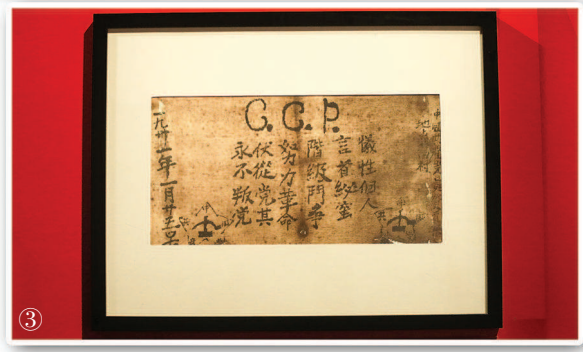 C.C.P.
中
地 村
犠牲個人
言首秘蜜
階級鬥争
努力革命
伏從党其
永不叛党
一九卅一年一月廿五号
③